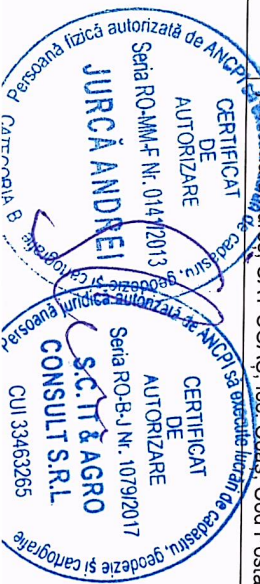 Persoană fizică autorizată de ANCPI
de cadastru, geodezie și cartografie
CERTIFICAT
DE
AUTORIZARE
Seria RO-MM-F Nr. 0141/2013
JURCĂ ANDREI
CATEGORIA B
Persoană juridică autorizată de ANCPI să execute lucrări de cadastru, geodezie și cartografie
CERTIFICAT
DE
AUTORIZARE
Seria RO-B-J Nr. 1079/2017
S.C. IT & AGRO
CONSULT S.R.L.
CUI 33463265